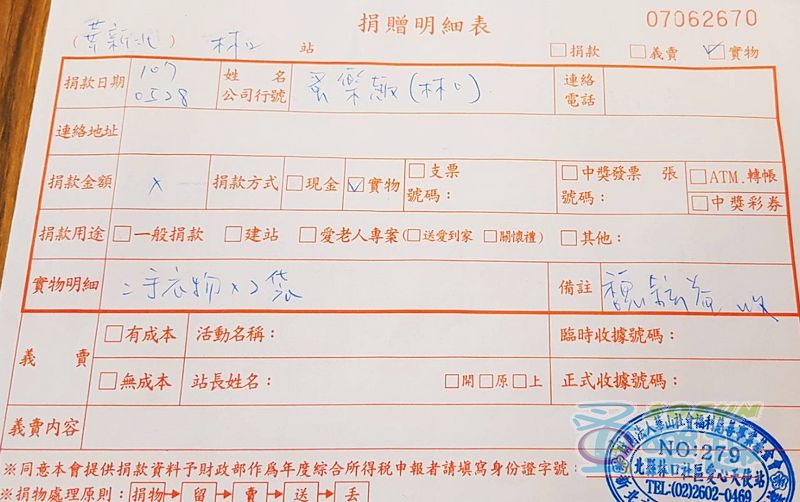 捐贈明細表
07062670
(華新北) 林口 站
□捐款 □義賣 ☑實物
捐款日期 107 0528 姓名 公司行號 (林口) 連絡電話
連絡地址
捐款金額 x 捐款方式 □現金 ☑實物 □支票 號碼: □中獎發票 張 號碼: □ATM.轉帳 □中獎彩券
捐款用途 □一般捐款 □建站 □愛老人專案(□送愛到家 □關懷禮) □其他:
實物明細 二手衣物x2袋 備註 收
義賣 □有成本 活動名稱: 臨時收據號碼:
□無成本 站長姓名: □開□原□上 正式收據號碼:
義賣內容
※同意本會提供捐款資料予財政部作為年度綜合所得稅申報者請填寫身份證字號:
※捐物處理原則:捐物→留→賣→送→丟
財團法人華山社會福利慈善事業基金會
NO:279
林口社區愛心天使站
TEL:(02)2602-0469